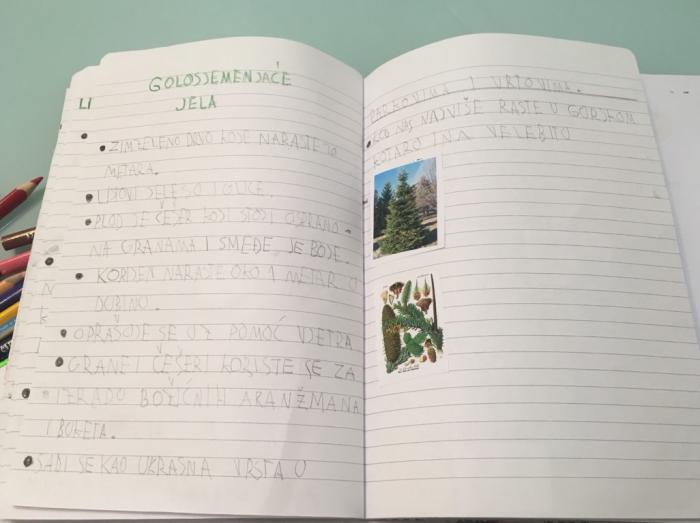 GOLOSJEMENJAČE
LI JELA
ZIMZELENO DRVO KOJE NARASTE 70
METARA.
LISTOVI JELE SU IGLICE.
PLOD JE ČEŠER KOJI STOJI USPRAVNO
NA GRANAMA I SMEĐE JE BOJE.
KORIJEN NARASTE OKO 1 METAR U
DUBINU.
OPRAŠUJE SE UZ POMOĆ VJETRA
GRANE I ČEŠERI KORISTE SE ZA
IZRADU BOŽIĆNIH ARANŽMANA
I BUKETA.
SADI SE KAO UKRASNA VRSTA U
PARKOVIMA I VRTOVIMA.
KOD NAS NAJVIŠE RASTE U GORSKOM
KOTARU I NA VELEBITU